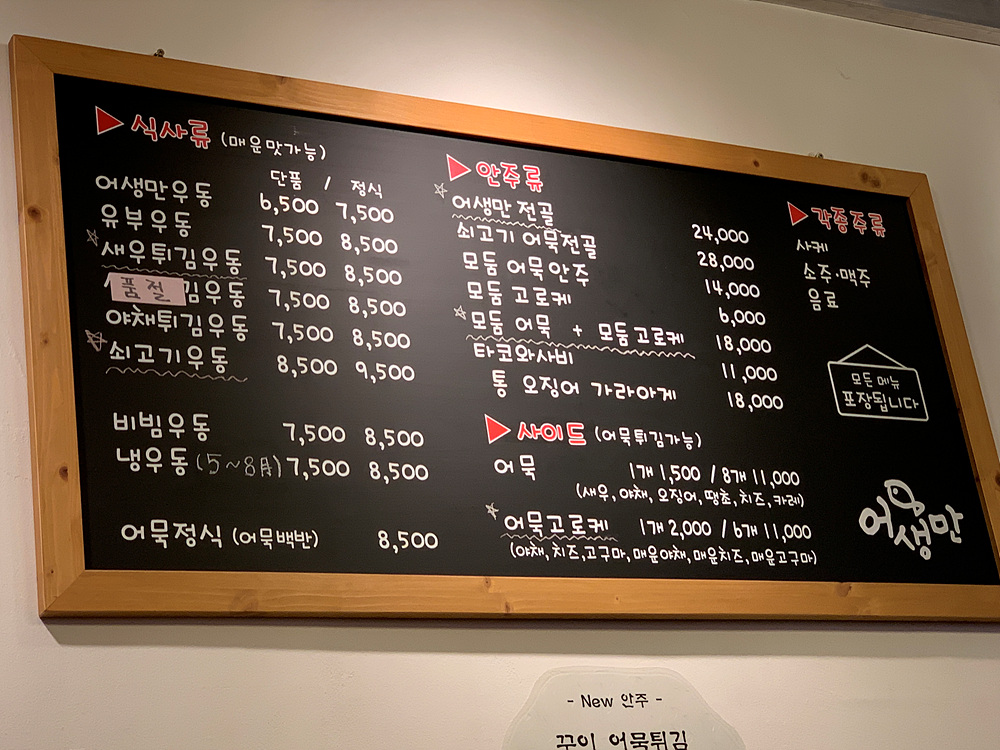 ▶ 식사류 (매운맛가능)
단품 / 정식
어생만우동 6,500 7,500
유부우동 7,500 8,500
☆ 새우튀김우동 7,500 8,500
품절 김우동 7,500 8,500
야채튀김우동 7,500 8,500
☆ 쇠고기우동 8,500 9,500
비빔우동 7,500 8,500
냉우동 (5~8月) 7,500 8,500
어묵정식 (어묵백반) 8,500
▶ 안주류
☆ 어생만 전골 24,000
쇠고기 어묵전골 28,000
모듬 어묵안주 14,000
모듬 고로케 6,000
☆ 모듬 어묵 + 모듬고로케 18,000
타코와사비 11,000
통 오징어 가라아게 18,000
▶ 사이드 (어묵튀김가능)
어묵 1개 1,500 / 8개 11,000
(새우, 야채, 오징어, 땡초, 치즈, 카레)
☆ 어묵고로케 1개 2,000 / 6개 11,000
(야채, 치즈, 고구마, 매운야채, 매운치즈, 매운고구마)
▶ 각종주류
사케
소주·맥주
음료
모든 메뉴
포장됩니다
어생만
- New 안주 -
꾸이 어묵튀김